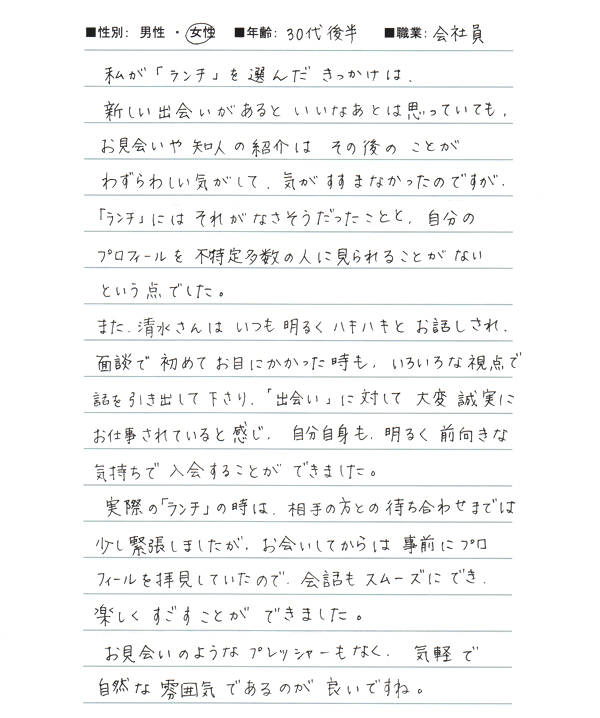 ■性別: 男性 ・ 女性 ■年齢: 30代後半 ■職業: 会社員
私が「ランチ」を選んだきっかけは、
新しい出会いがあるといいなあとは思っていても、
お見会いや知人の紹介は その後の ことが
わずらわしい気がして、気がすすまなかったのですが、
「ランチ」には それがなさそうだったことと、自分の
プロフィールを 不特定多数の人に見られることが ない
という点でした。
また、清水さんは いつも 明るく ハキハキと お話しされ、
面談で 初めて お目にかかった時も、いろいろな視点で
話を引き出して下さり、「出会い」に対して 大変 誠実に
お仕事されていると感じ、 自分自身も、明るく 前向きな
気持ちで 入会することが できました。
実際の「ランチ」の時は、相手の方との待ち合わせまでは
少し緊張しましたが、お会いしてからは 事前にプロ
フィールを拝見していたので、会話も スムーズにでき、
楽しく すごすことが できました。
お見会いのような プレッシャーもなく、 気軽で
自然な 雰囲気 であるのが 良いですね。